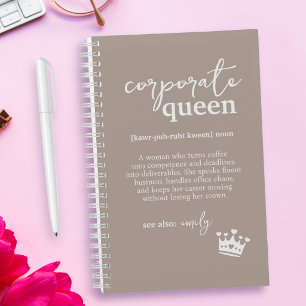 corporate
queen
[kawr-puh-ruht kween] noun
A woman who turns coffee
into competence and deadlines
into deliverables. She speaks fluent
business, handles office chaos,
and keeps her career moving
without losing her crown.
see also: emily